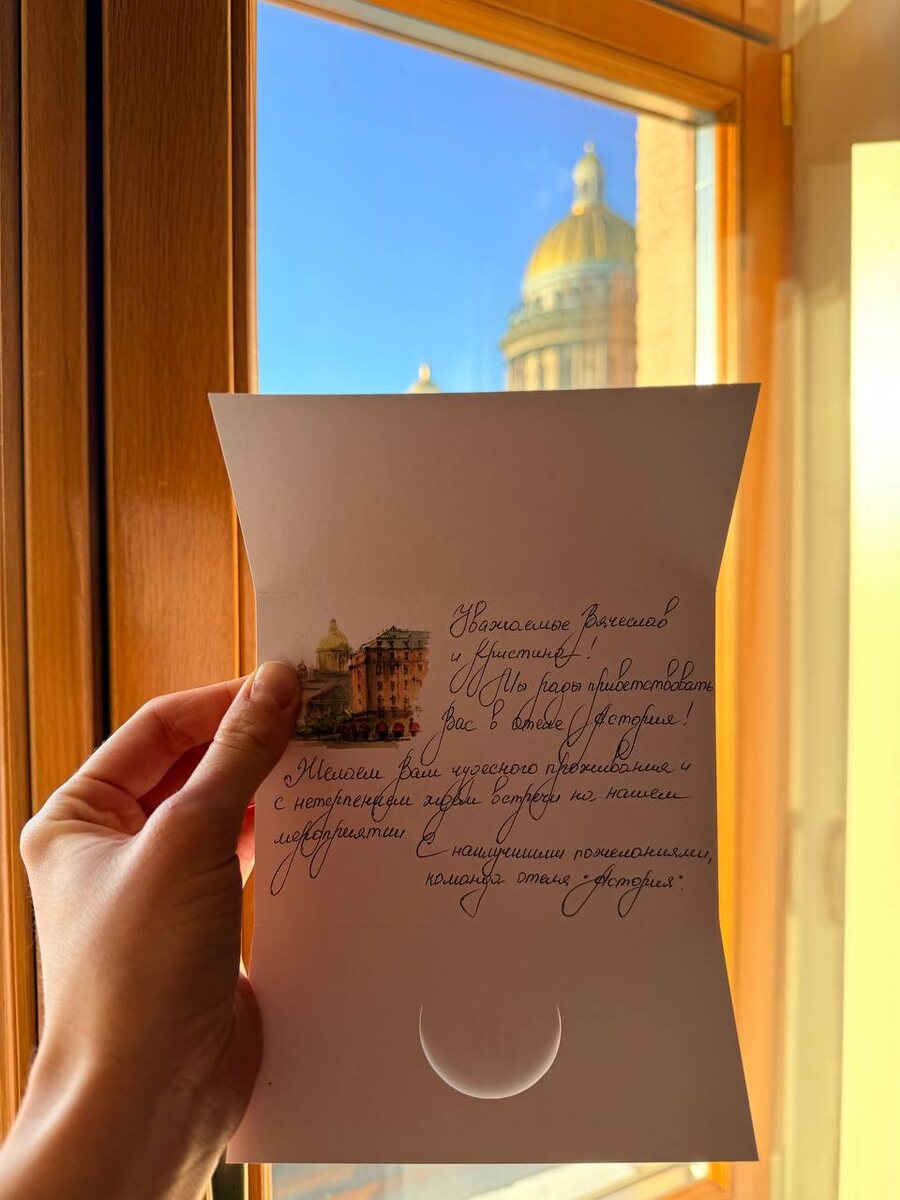 Уважаемые Вячеслав
и Кристина!
Мы рады приветствовать
Вас в отеле Астория!
Желаем Вам чудесного проживания и
с нетерпением ждём встречи на нашем
мероприятии. С наилучшими пожеланиями,
команда отеля "Астория".